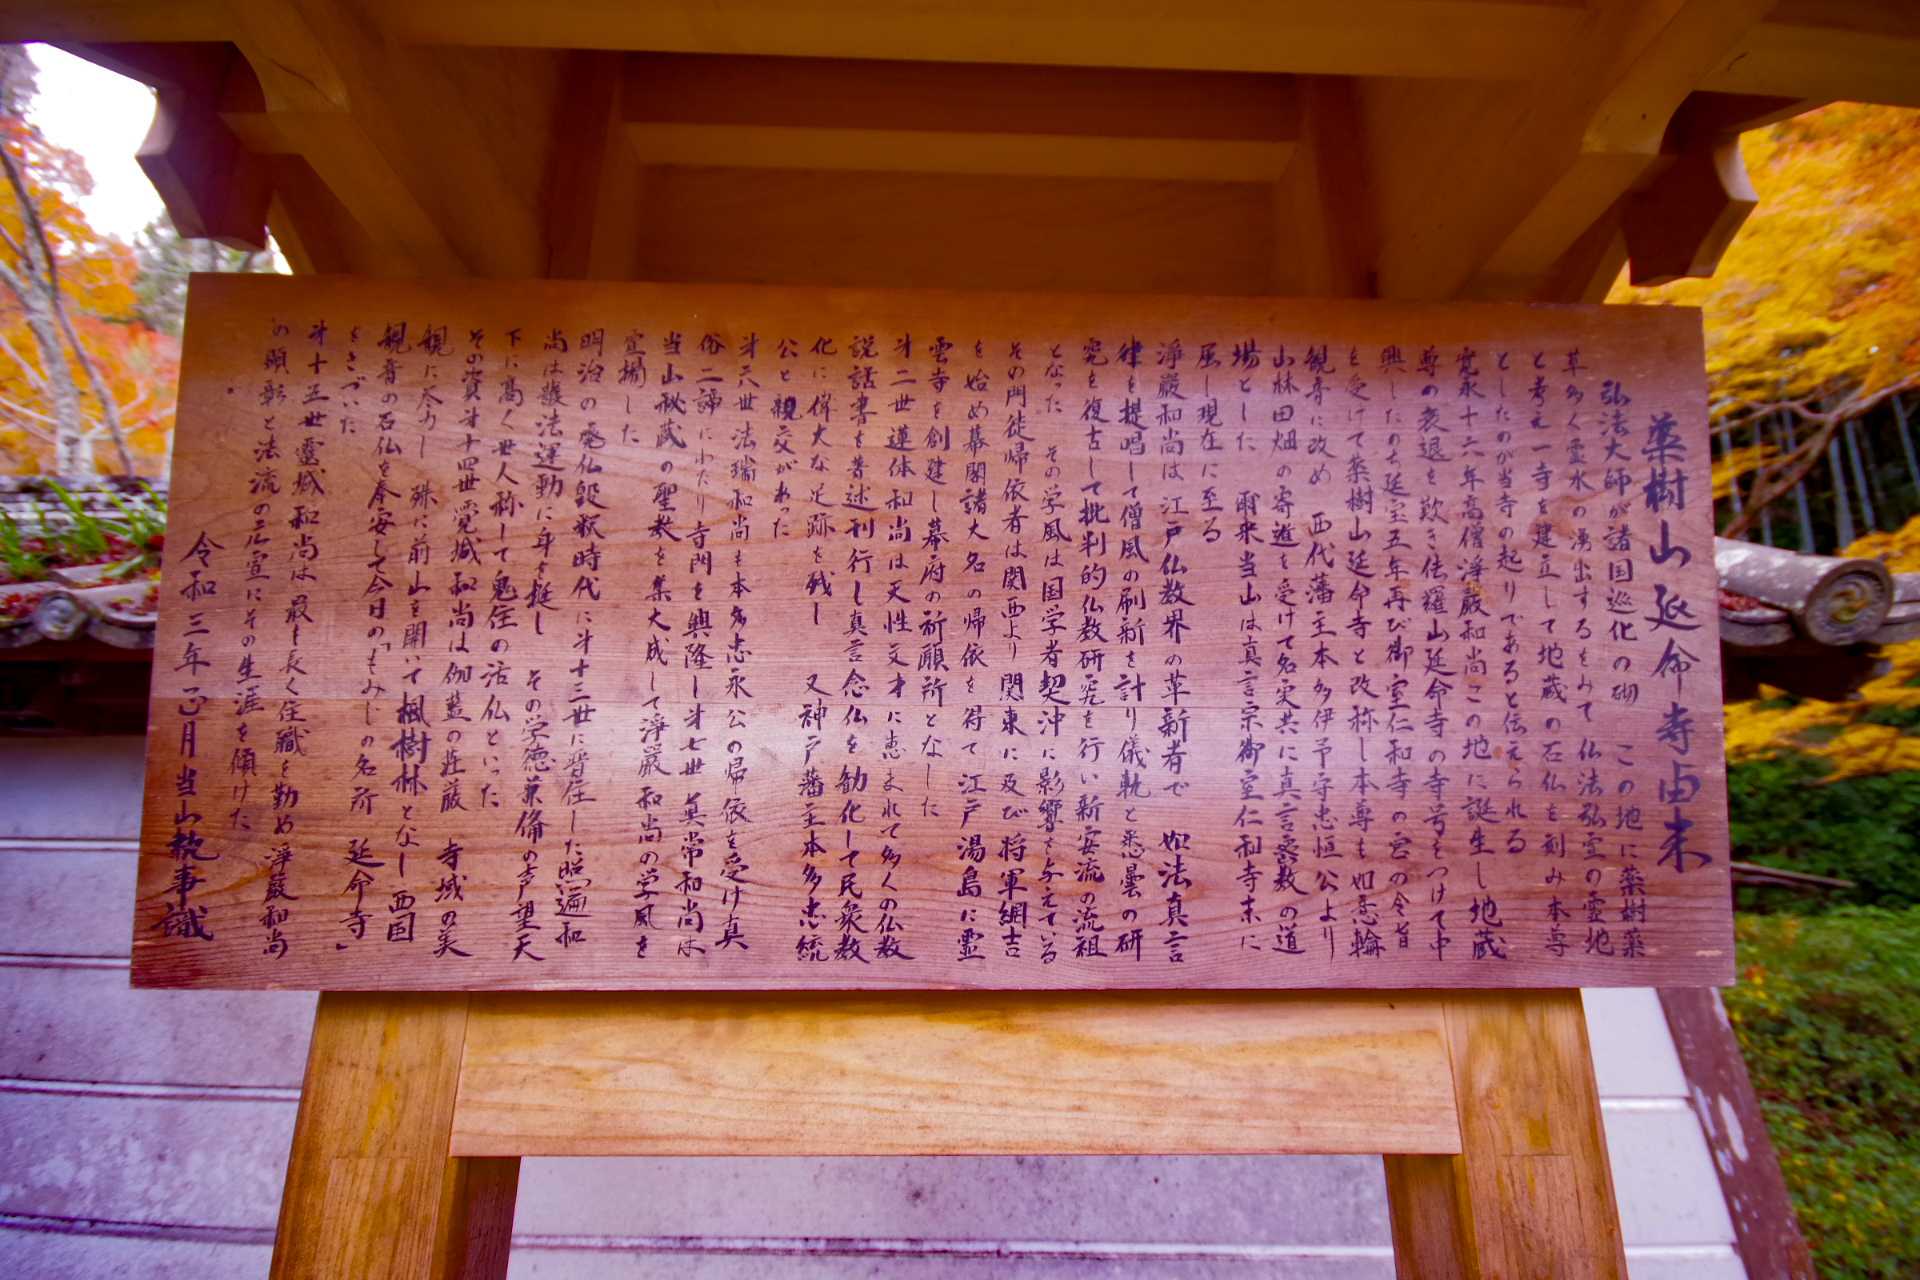 薬樹山延命寺由来
弘法大師が諸国巡化の砌 この地に薬樹薬
草多く霊水の湧出するをみて仏法弘宣の霊地
と考え一寺を建立して地蔵の石仏を刻み本尊
としたのが当寺の起りであると伝えられる
寛永十六年高僧浄厳和尚この地に誕生し地蔵
尊の衰退を歎き佉羅山延命寺の寺号をつけて中
興したのち延宝五年再び御室仁和寺の宮の令旨
を受けて薬樹山延命寺と改称し本尊も如意輪
観音に改め 西代藩主本多伊予守忠恒公より
山林田畑の寄進を受けて名実共に真言密教の道
場とした 爾来当山は真言宗御室仁和寺末に
属し現在に至る
淨嚴和尚は江戸仏教界の革新者で 如法真言
律を提唱して僧風の刷新を計り儀軌と悉曇の研
究を復古して批判的仏教研究を行い新安流の流祖
となった その学風は国学者契沖に影響を与えている
その門徒帰依者は関西より関東に及び将軍綱吉
を始め幕閣諸大名の帰依を得て江戸湯島に霊
雲寺を創建し幕府の祈願所となした
第二世蓮体和尚は天性文才に恵まれて多くの仏教
説話書を著述刊行し真言念仏を勧化して民衆教
化に偉大な足跡を残し 又神戸藩主本多忠統
公と親交があった
第六世法瑞和尚も本多忠永公の帰依を受け真
俗二諦にわたり寺門を興隆し第七世真常和尚は
当山秘蔵の聖教を集大成して淨嚴和尚の学風を
宣揚した
明治の廃仏毀釈時代に第十三世に晋住した照遍和
尚は護法運動に身を挺し その学徳兼備の声望天
下に高く世人称して鬼住の活仏といった
その資第十四世覚城和尚は伽藍の荘厳 寺域の美
観に尽力し 殊に前山を開いて楓樹林となし西国
観音の石仏を奉安して今日の「もみじの名所 延命寺」
をきづいた
第十五世霊城和尚は最も長く住職を勤め淨嚴和尚
の顕彰と法流の広宣にその生涯を傾けた
令和三年正月当山執事識